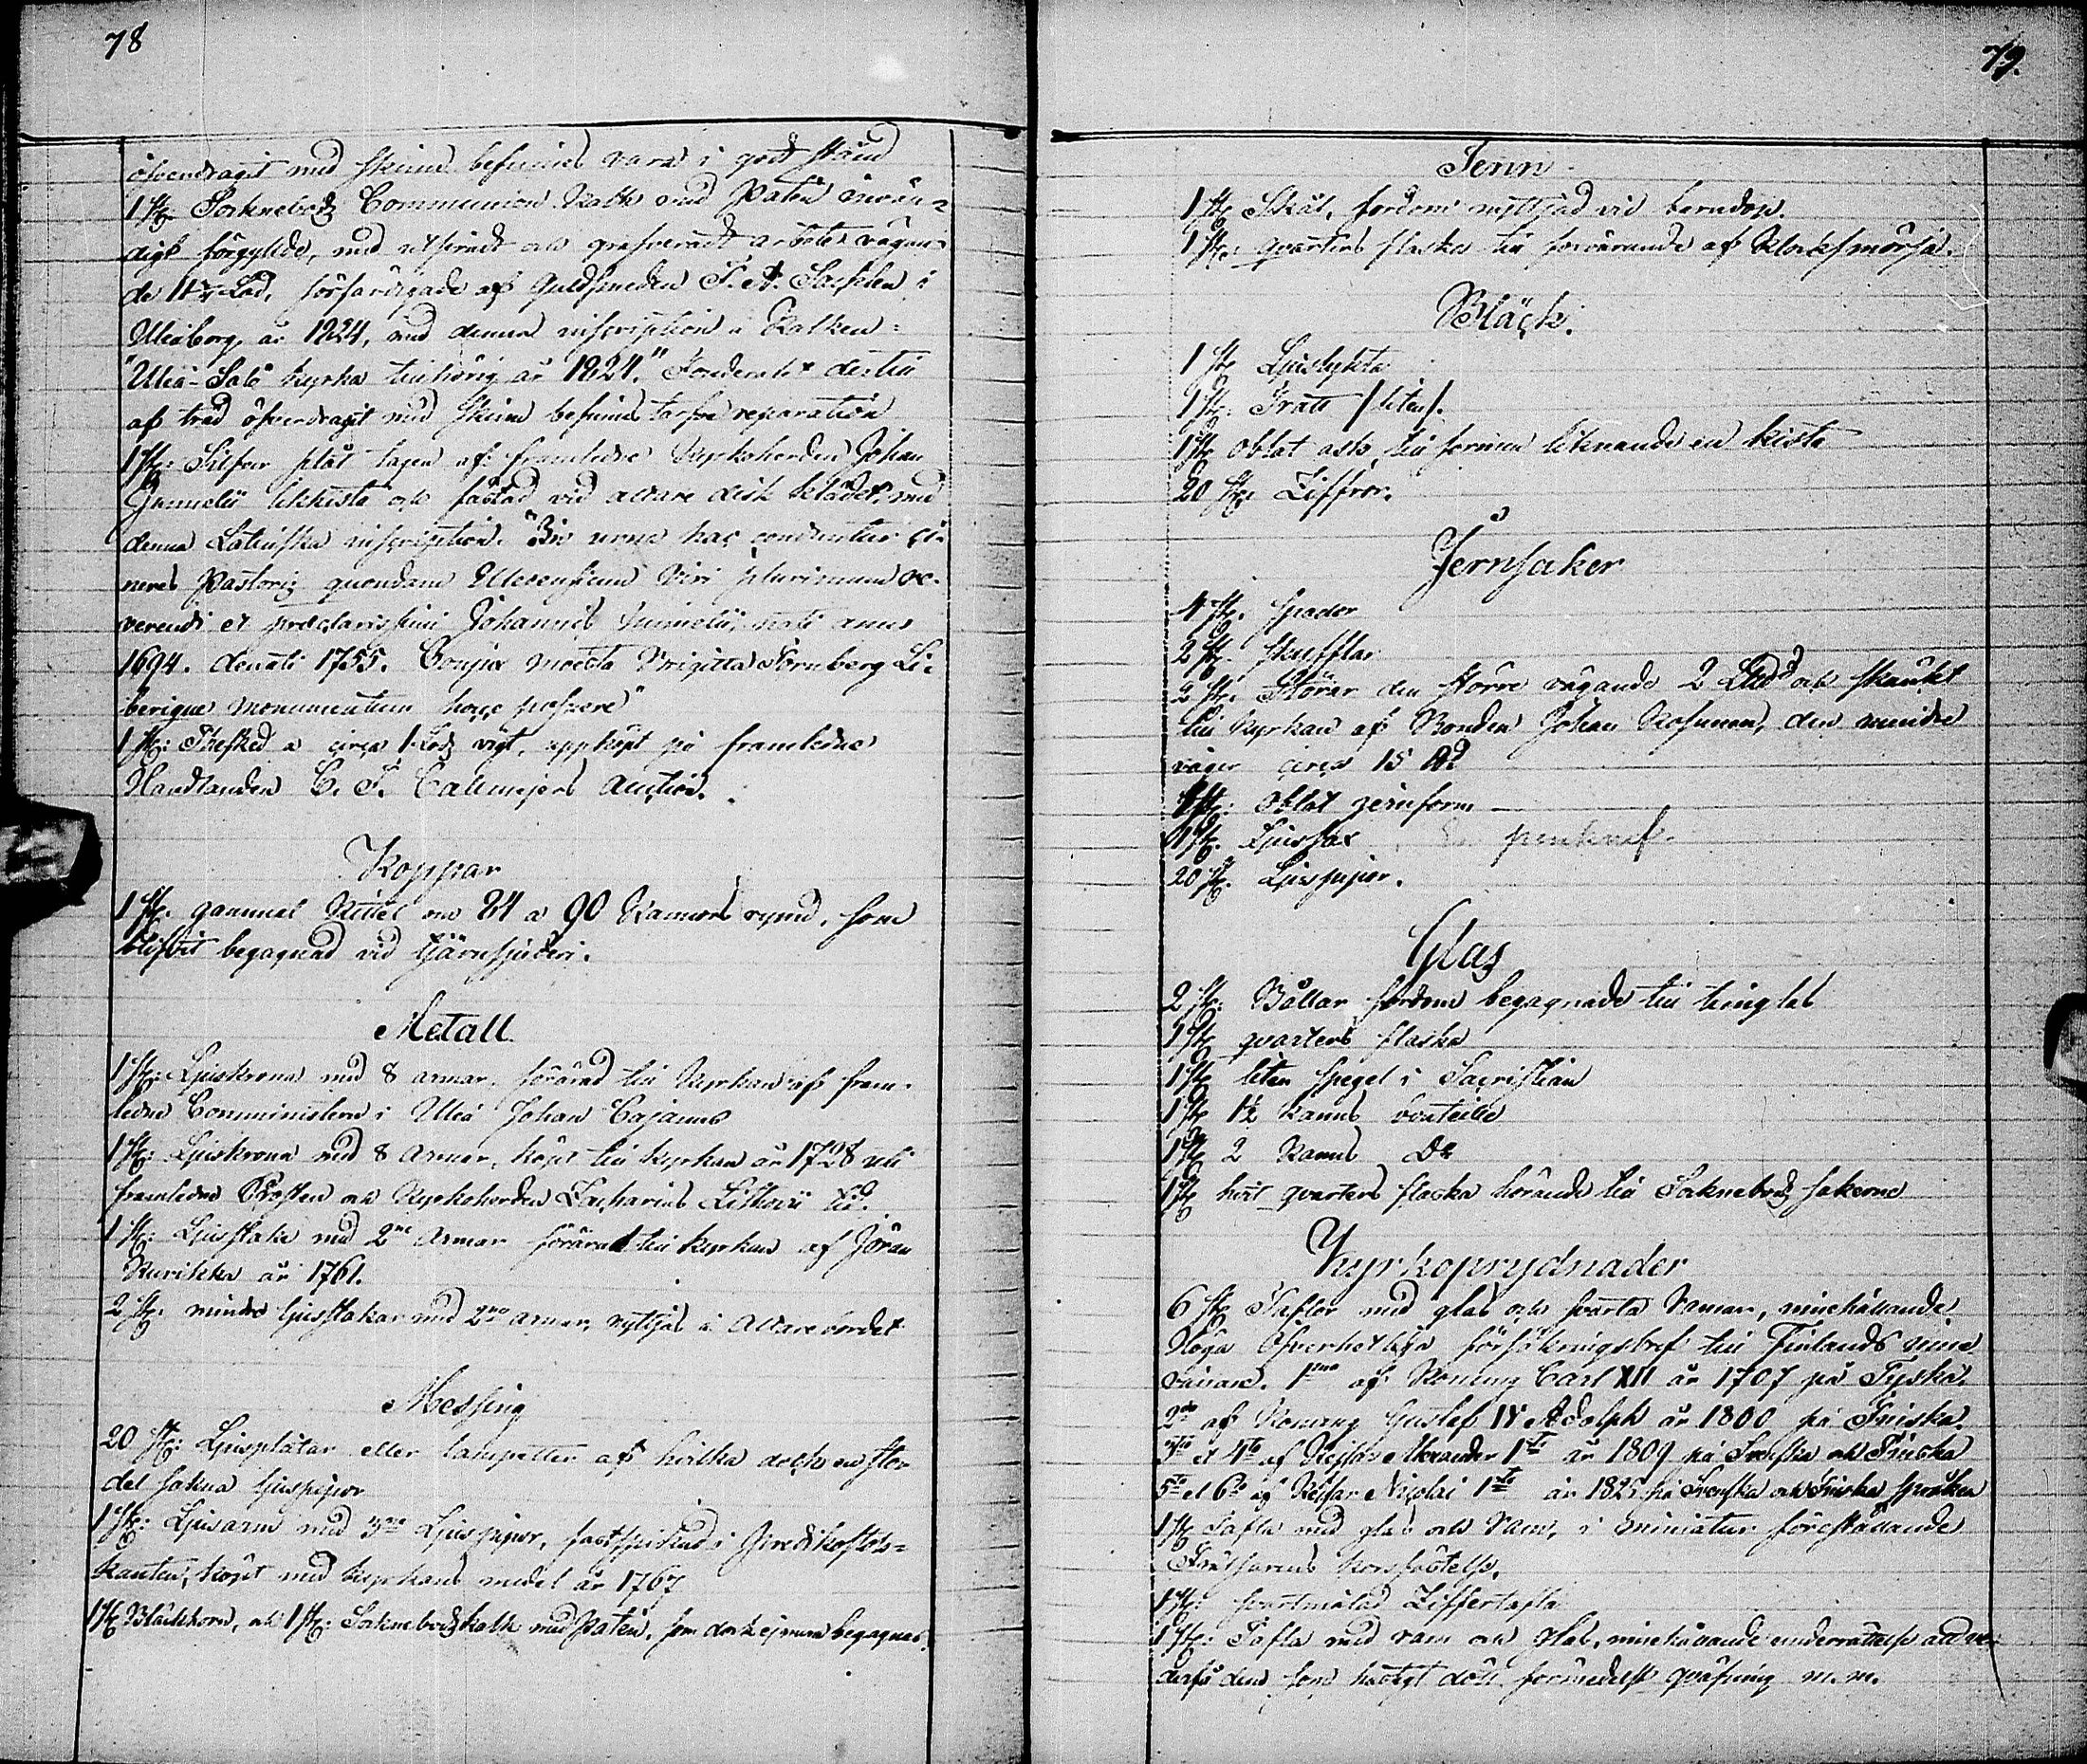 78
öfverdragit med skinn befinnes vara i godt stånd
1 st: Socknebods Communion Kalk med Paten invän-
digt förgyllde, med utsiradt och graveradt arbete vägan-
de Lod, förfärdigade af Guldsmeden i
Uleåborg år 1824, med denna inscription å Kalken:
"Uleå-Salo kyrka tillhörig år 1824." Foderalet dertill
af träd öfverdragit med skinn befinnes tarfva reparation
1 st: Silfver plåt tagen af framledne Kyrkoherden Johan
Junnelii likkista och fästad vid altare disk klädet, med
denna Latinska inscription: urna hac conduntur ci-
neres Pastoris quondam Uloensium Viri plurimum re-
verendi et præclarissimi Johannis Junnelii, nati anno
1694. denati 1755. Conjux moesta Brigitta Törnberg Li-
berique monumentum hocce posuere"
1 st: Thesked a circa 1 Lod vigt, uppköpt på framledne
Handlanden C. F. Auction.
Koppar
1 st: gammal Kittel om 84 a 90 Kannors rymd, som
blifvit begagnad vid tjärusjuderi.
Metall
1 st: Ljuskrona med 8 armar, förärad till Kyrkan af fram-
ledne Comministern i Uleå Johan Cajanus
1 st: Ljuskrona med 8 Armar, köpt till kyrkan år 1728 uti
framledne Prosten och Kyrkoherden Zacharias Lithovii tid.
1 st: Ljusstake med 2ne Armar förärad till kyrkan af Jöran
Kurikka år 1761.
2 st: mindre ljusstakar med 2ne armar, nyttjas å Altare bordet
Messing
20 st: Ljusplåtar eller lampetter af hvilka dock en stor
del sakna ljuspipor
1 st: Ljusarm med 3ne Ljuspipor, fastspikad i Predikostols-
kanten, köpt med kyrkans medel år 1767
1 st Bläckhorn, och 1 st: Socknebods kalk med Paten, som dock ej mera begagnas.
79.
Tenn
1 st: Skål, fordom nyttjad vid barndop.
1 st: qvarters flaska till förvarande af Klocksmörja.
Bläck.
1 st: Ljuslykta
1 st: Tratt /liten/.
1 st: Oblat ask, till formen liknande en kista
20 st: Ziffror.
Jernsaker
4 st: spador
2 st: skufflar
2 st: Störar den större vägande 2 och skänkt
till Kyrkan af Bonden Johan Kosunen, den mindre
väger circa 15
1 st: Oblat jernform
1 st: Ljussax En pennknif
20 st: Ljuspipor.
Glas
2 st: Bållar fordom begagnade till timglas
1 st: qvarters flaska
1 st: liten spegel i Sacristian
1 st: 1½ Kanns bouteille
1 st: 2 Kanns Do
1 st: hvit qvarters flaska hörande till Socknebods sakerne
Kyrkoprydnader
6 st: Taflor med glas och svarta Ramar, innehållande
Höga Öfverhetliga försäkringsbref till Finlands inne-
vånare. 1mo af Konung Carl XII år 1707 på Tyska.
2do af Konung Gustaf IV Adolph år 1800 på Finska
3tio et 4to af Kejsar Alexander 1ste år 1809 på Svenska och Finska
5to et 6to af Kejsar Nicolai 1ste år 1825 på Svenska och Finska språken
1 st: Tafla med glas och Ram, i miniatur föreställande
Frälsarens korsfästelse.
1 st: svartmålad Ziffertafla
1 st: Tafla med ram och glas, innehållande underrättelse att
den som hastigt dött förmedelst qväfning m.m.